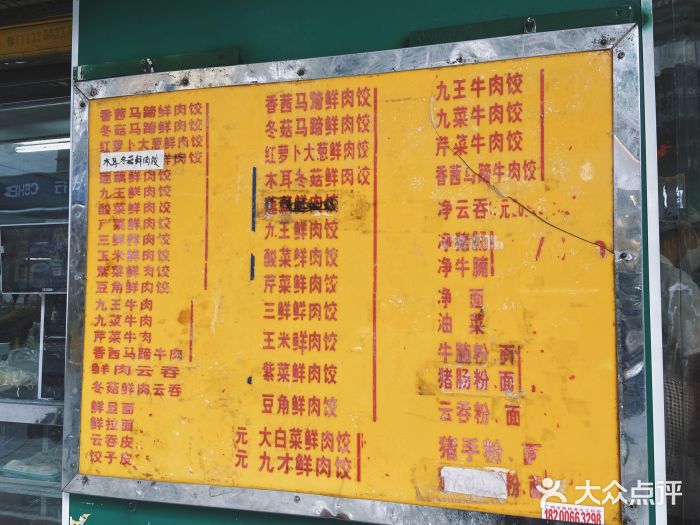 香茜马蹄鲜肉饺
冬菇马蹄鲜肉饺
红萝卜大葱鲜肉饺
木耳冬菇鲜肉饺
莲藕鲜肉饺
九王鲜肉饺
酸菜鲜肉饺
芹菜鲜肉饺
三鲜鲜肉饺
玉米鲜肉饺
紫菜鲜肉饺
豆角鲜肉饺
九王牛肉
九菜牛肉
芹菜牛肉
香茜马蹄牛肉
鲜肉云吞
冬菇鲜肉云吞
鲜旦面
鲜拉面
云吞皮
饺子皮
香茜马蹄鲜肉饺
冬菇马蹄鲜肉饺
红萝卜大葱鲜肉饺
木耳冬菇鲜肉饺
鲜肉饺
九王鲜肉饺
酸菜鲜肉饺
芹菜鲜肉饺
三鲜鲜肉饺
玉米鲜肉饺
紫菜鲜肉饺
豆角鲜肉饺
元 大白菜鲜肉饺
元 九才鲜肉饺
九王牛肉饺
九菜牛肉饺
芹菜牛肉饺
香茜马蹄牛肉饺
净云吞 元
净猪肠
净牛腩
净 面
油 菜
牛腩粉、面
猪肠粉、面
云吞粉、面
猪手粉、面
粉、面
18200663298
大众点评